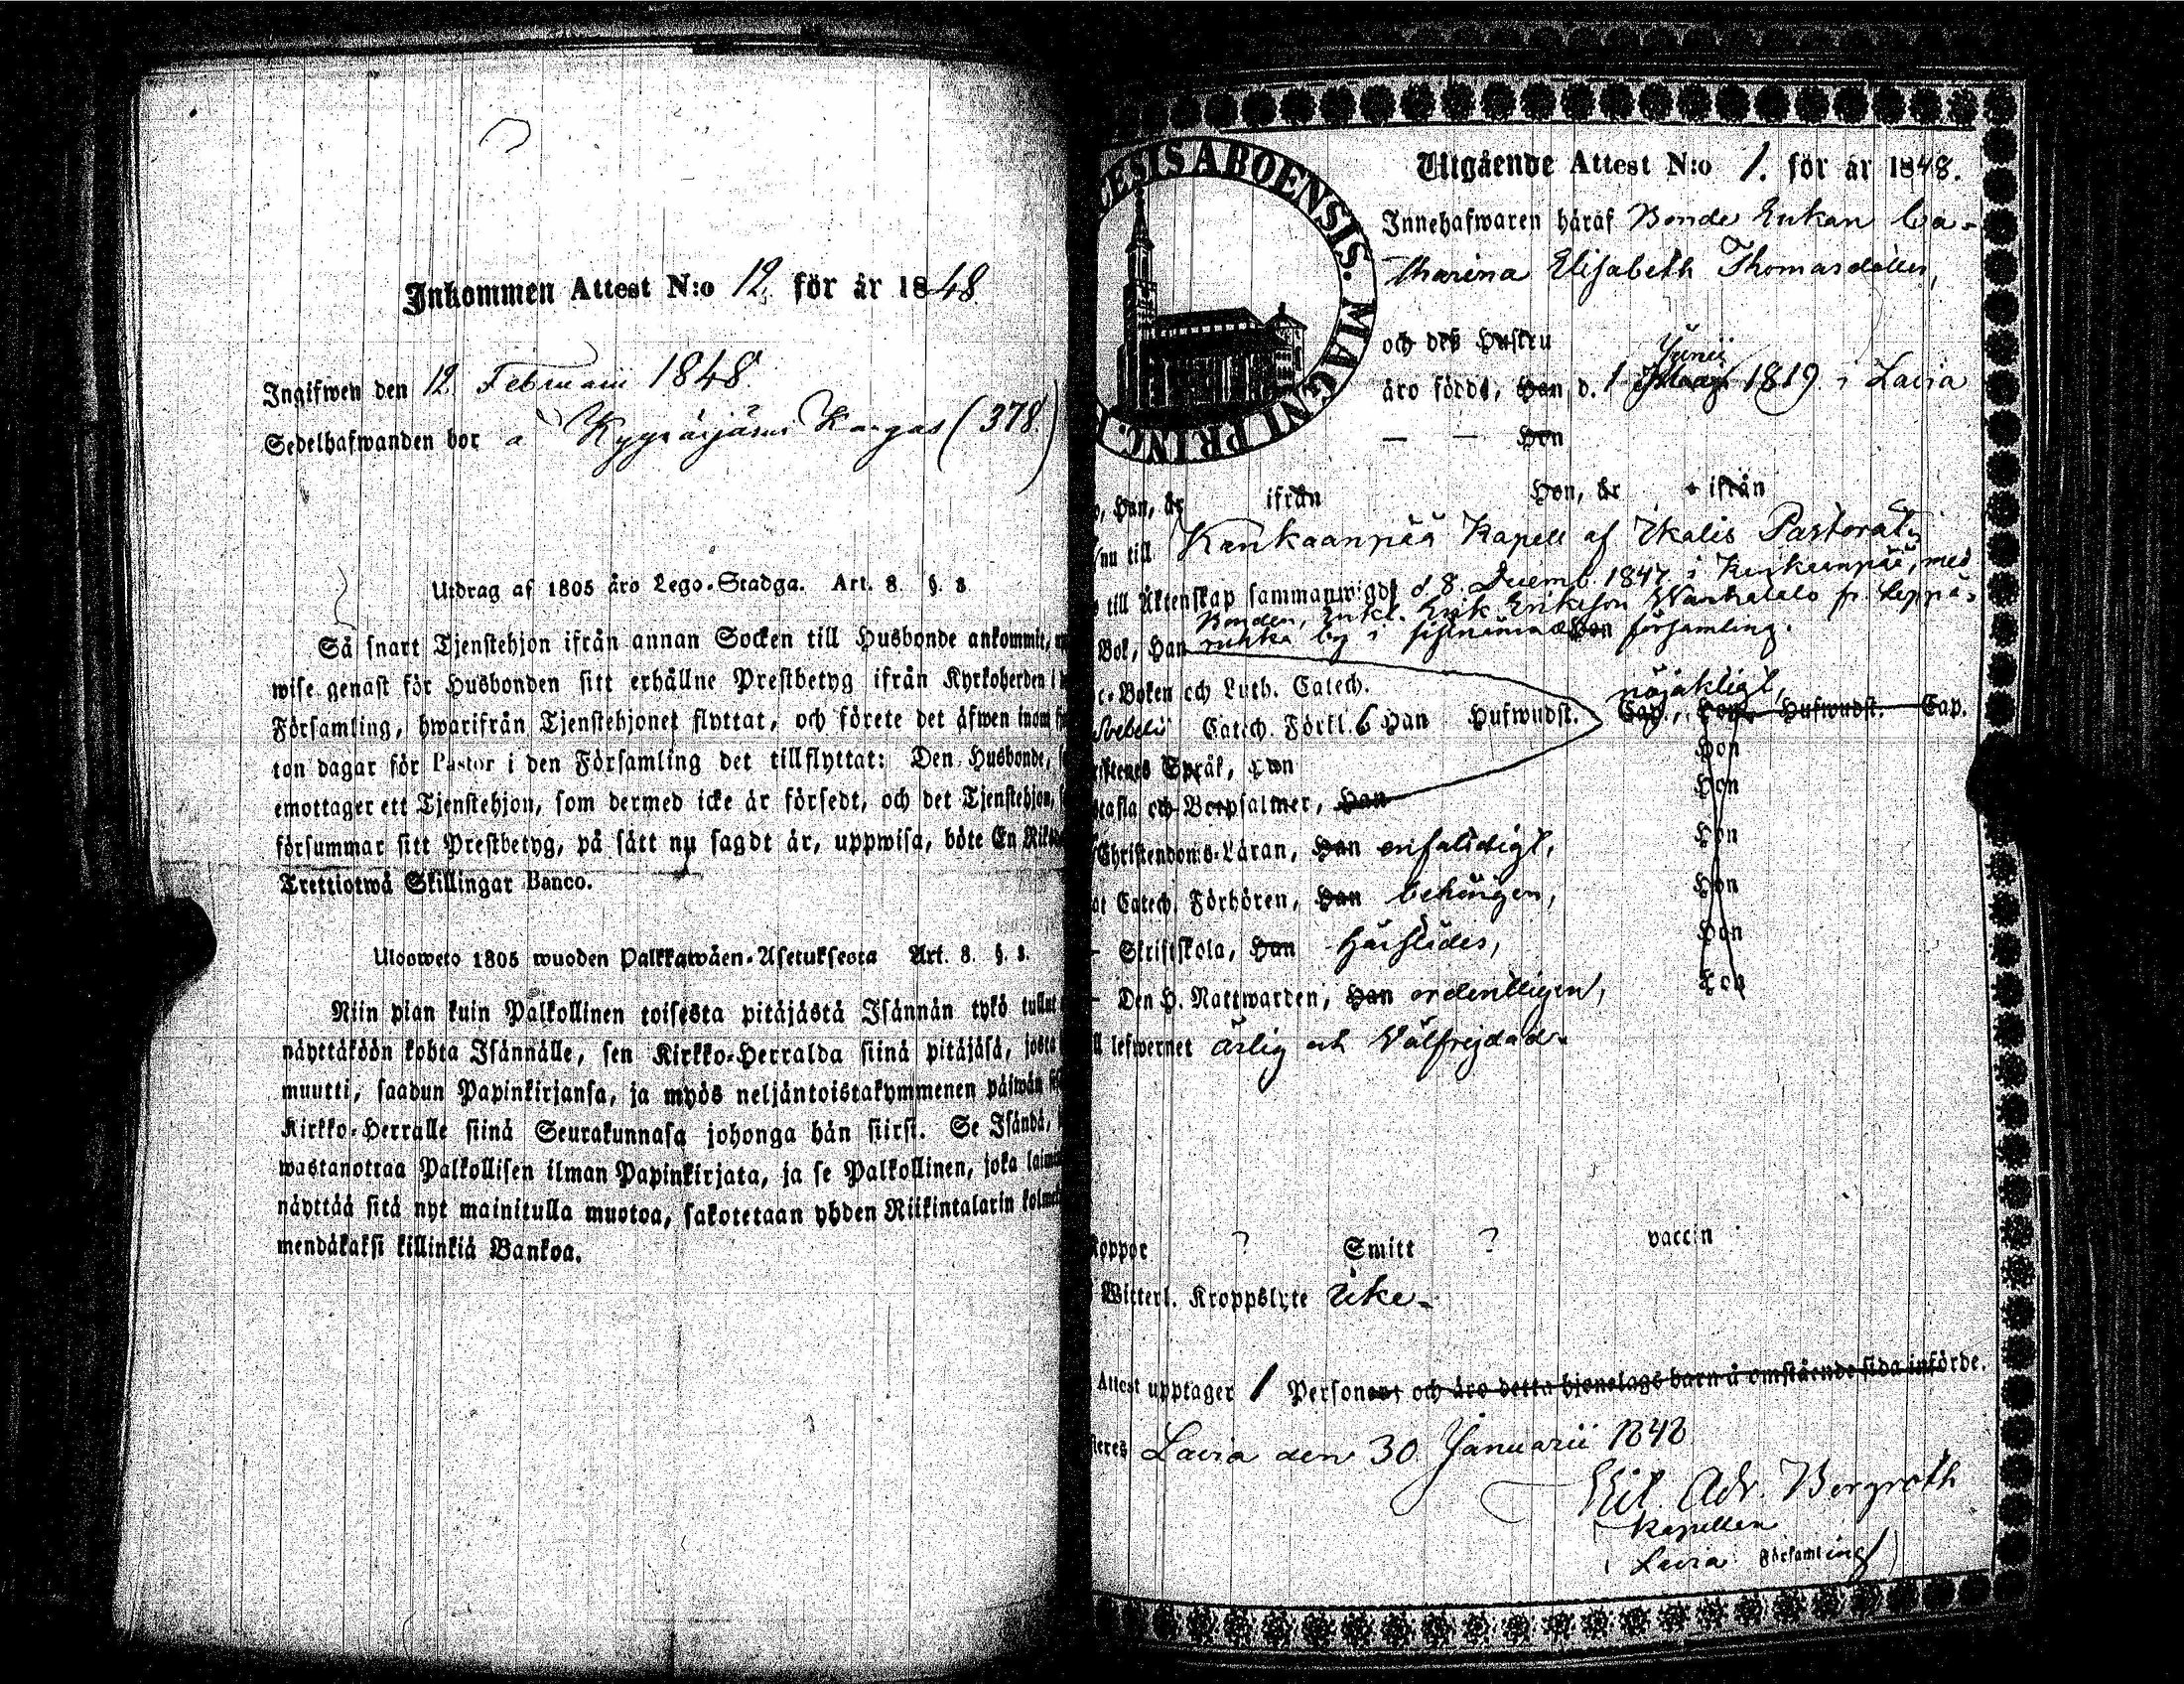 Inkommen Attest N:o 12 för år 1848
Ingifwen den 12 Februarii 1848
Sedelhafwanden bor å Kyynärjärvi Kangas (378.)
Utdrag af 1805 års Lego-Stadga. Art. 8 §. 3
Så snart Tjenstehjon ifrån annan Socken till Husbonde ankommit,
wise genast för Husbonden sitt erhållne Prestbetyg ifrån Kyrkoherden i
Församling, hwarifrån Tjenstehjonet flyttat, och förete det äfwen inom
ton dagar för Pastor i den Församling det tillflyttat: Den Husbonde,
emottager ett Tjenstehjon, som dermed icke är försedt, och det Tjenstehjon,
försummar sitt Prestbetyg, på sätt nu sagdt är, uppwisa, böte En
Trettiotwå Skillingar Banco.
Ulosweto 1805 wuoden Palkkawäen-Asetuksesta Art. 8. §. 3.
Niin pian kuin Palkollinen toisesta pitäjästä Isännän tykö tullut
näyttäköön kohta Isännälle, sen Kirkko-Herralda siinä pitäjäsä, josta
muutti, saadun Papinkirjansa, ja myös neljäntoistakymmenen päiwän
Kirkko-Herralle siinä Seurakunnasa johonga hän siirsi. Se Isändä,
wastanottaa Palkollisen ilman Papinkirjata, ja se Palkollinen, joka
näyttää sitä nyt mainitulla muotoa, sakotetaan yhden Riikintalarin
mendäkaksi killinkiä Bankoa.
CESIS ABOENSIS. MAGNI PRINC.
Utgående Attest N:o 1. för år 1848.
Innehafwaren häraf Bonde Enkan Ca-
tharina Elisabeth Thomasdotter,
och des Hustru
Junii
äro född, Han, d. 1 1819 i Lavia
— — Hon
Han, är ifrån Hon, är ifrån
nu till Kankaanpää Kapell af Ikalis Pastorat,
till Äktenskap sammanwigd d 8 Decemb. 1847 i Kankaanpää, med
Bonden, Enkl. Erik Eriksson fr. Leppä-
Bok, Han ruhka by i sistnämnda Hon församling.
Boken och Luth. Catech. nöjaktigt,
Svebelii Catech. Förkl. 6 Han Hufwudst. Cap., Hon Hufwudst. Cap.
Språk, Han Hon
och Botpsalmer, Han Hon
Christendoms-Läran, Han enfaldigt, Hon
Catech. Förhören, Han behörigen, Hon
Skriftskola, Han härstädes, Hon
Den H. Nattwarden, Han ordentligen, Hon
lefwernet ärlig och Välfrejdad.
Koppor ? Smitt ? vaccin
Witterl. Kroppslyte Icke.
Attest upptager 1 Personer, och äro detta hjonelags barn å omstående sida införde.
Lavia den 30 Januarii 1848
Adr. Bergroth
Kapellan
Lavia Församling